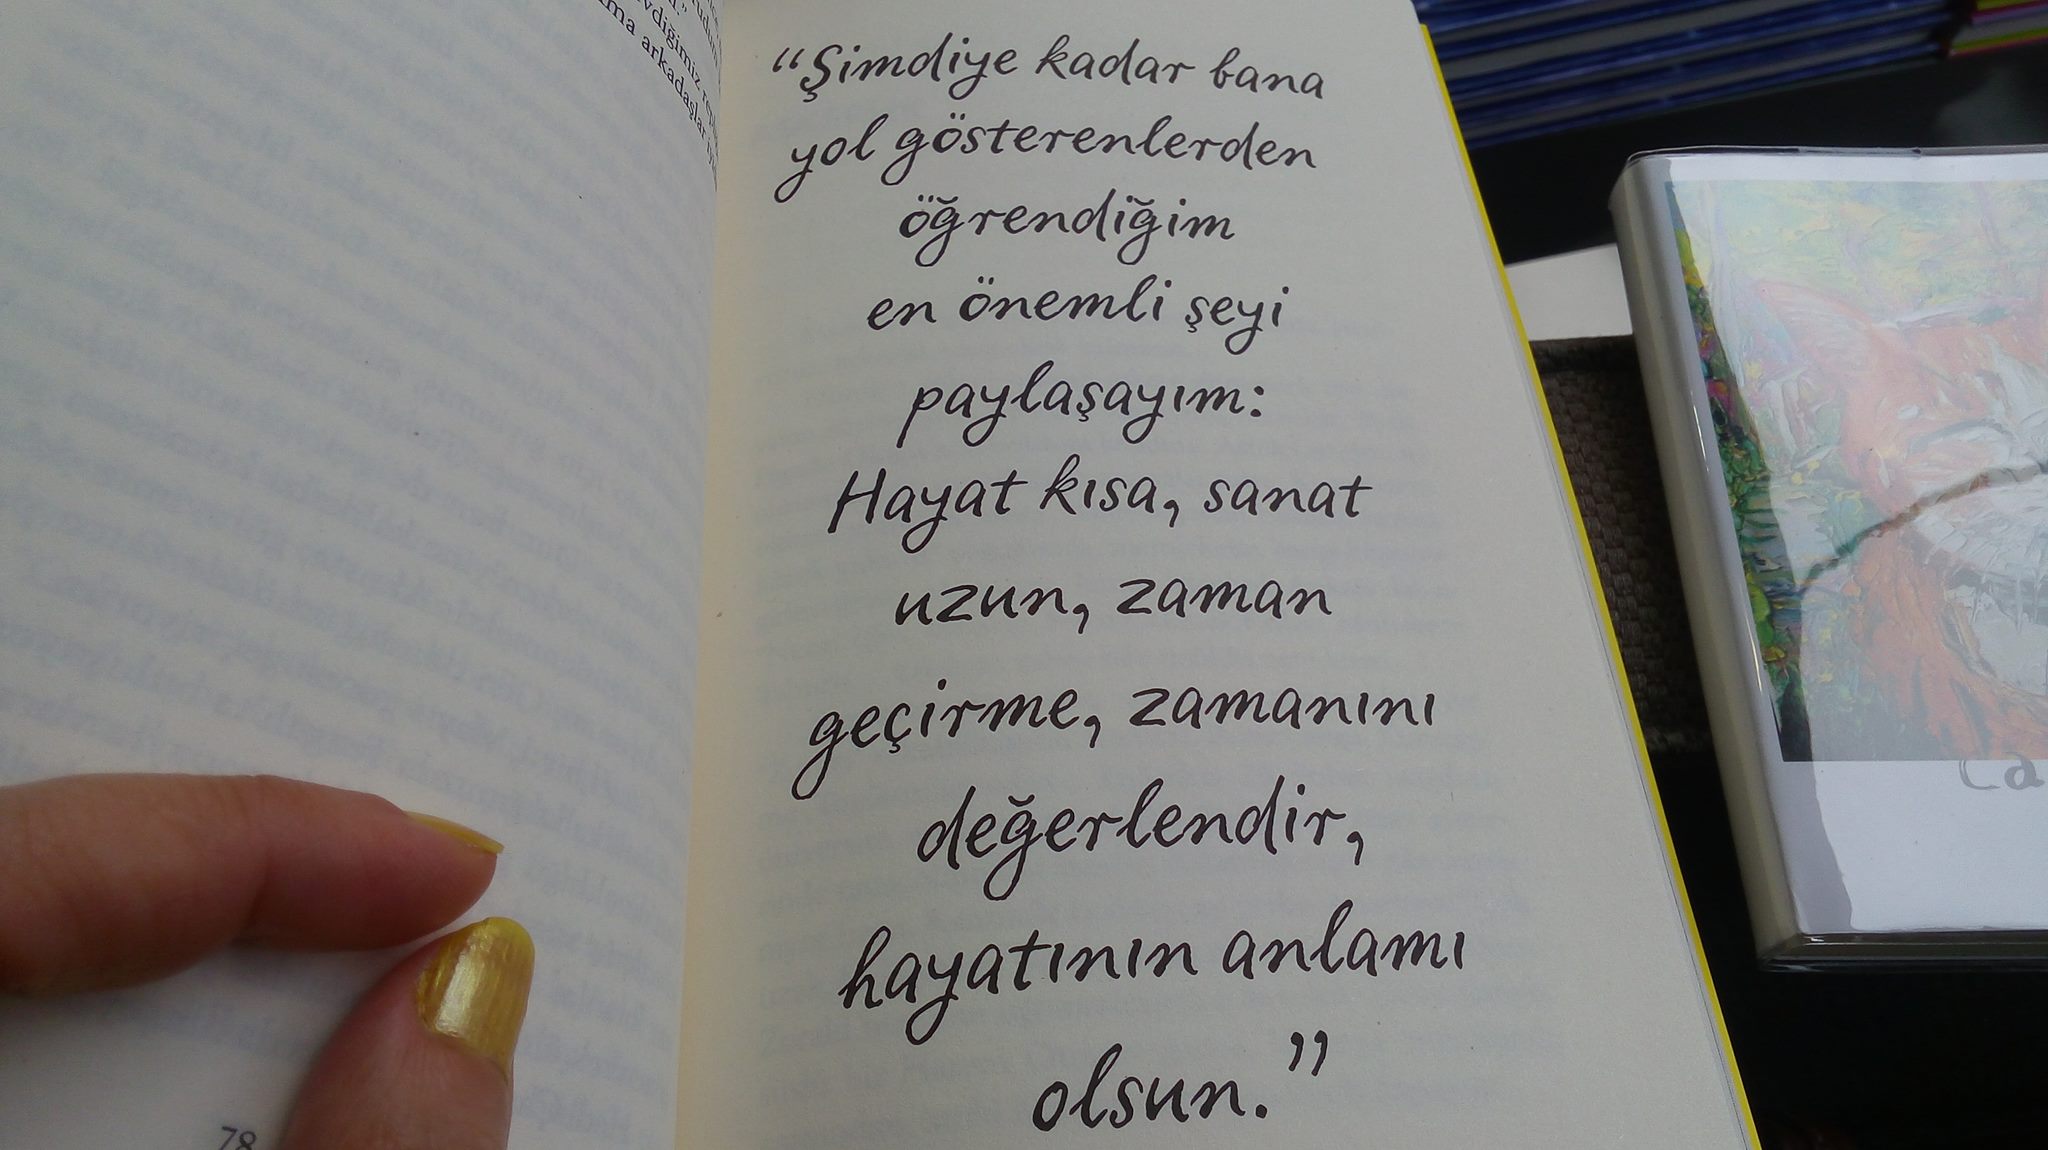 arkadaşlar
"Şimdiye kadar bana
yol gösterenlerden
öğrendiğim
en önemli şeyi
paylaşayım:
Hayat kısa, sanat
uzun, zaman
geçirme, zamanını
değerlendir,
hayatının anlamı
olsun."
78